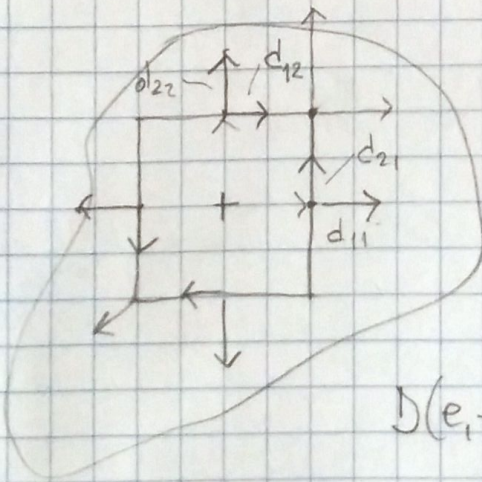 d₂₂ d₁₂
d₂₁
d₁₁
D(e₁